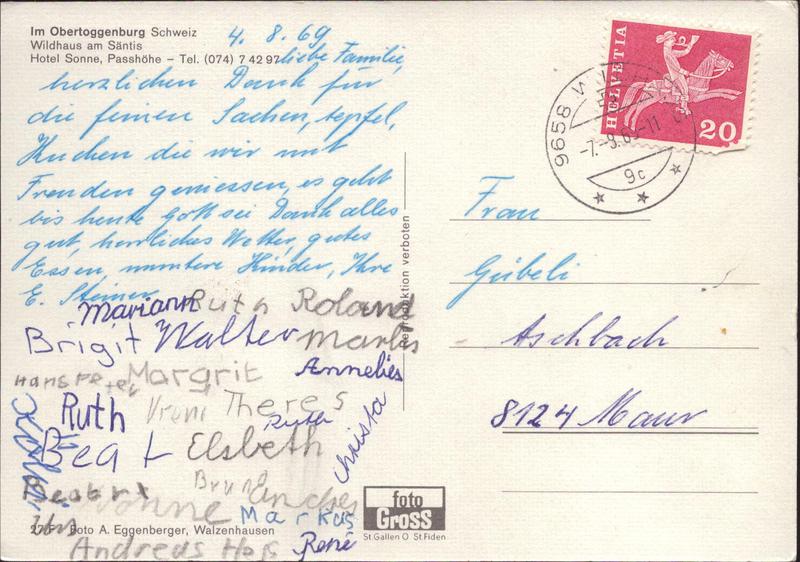 Im Obertoggenburg Schweiz
Wildhaus am Säntis
Hotel Sonne, Passhöhe – Tel. (074) 7 42 97
4. 8. 69
liebe Familie,
herzlichen Dank für
die feinen Sachen, Aepfel,
Kuchen die wir mit
Freuden geniessen, es geht
bis heute Gott sei Dank alles
gut, herrliches Wetter, gutes
Essen, muntere Kinder, Ihre
E. Steiner
Mariann Ruth Roland
Brigit Walter Marlis
Hanspeter Margrit Annelies
Ruth Vreni Theres
Ruth
Beat Elsbeth Christa
Bruno
Markus
Urs
Andreas
René
Foto A. Eggenberger, Walzenhausen
Reproduktion verboten
foto
Gross
St.Gallen O St.Fiden
HELVETIA
20
9658
-7.-8.69-11
9c
Frau
Gübeli
Aschbach
8124 Maur